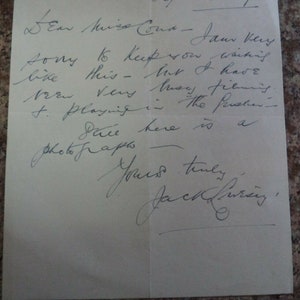 Dear Miss Cond - I am very
sorry to keep you waiting
like this - but I have
been very busy filming
& playing in the
Still here is a
photograph -
Yours truly,
Jack